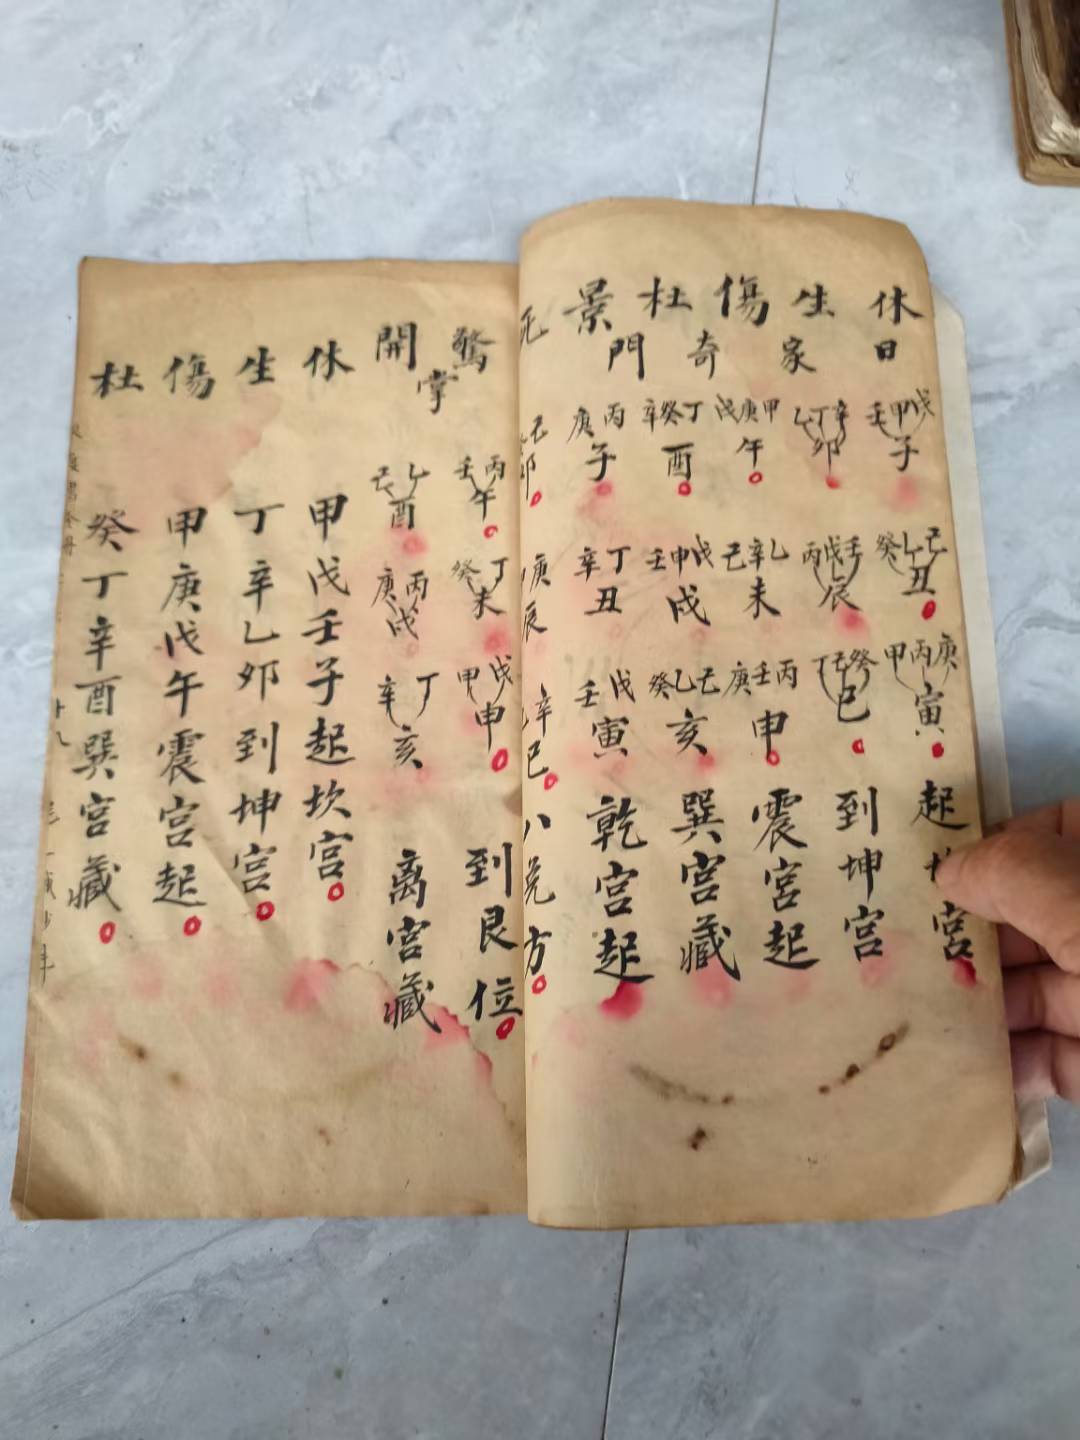 休 生 傷 杜 景 死
日 家 奇 門
戊甲壬子
己乙癸丑
庚丙甲寅
起 宮
辛丁乙卯
壬戊丙辰
癸己丁巳
到坤宮
甲庚戊午
乙辛己未
丙壬庚申
震宮起
丁癸辛酉
戊甲壬戌
己乙癸亥
巽宮藏
丙庚子
丁辛丑
戊壬寅
乾宮起
己癸卯
庚 辰
辛 巳
八兌方
驚 開 休 生 傷 杜
掌
丙壬午
丁癸未
戊甲申
到艮位
乙己酉
丙庚戌
丁辛亥
离宮藏
甲戊壬子起坎宮
丁辛乙卯到坤宮
甲庚戊午震宮起
癸丁辛酉巽宮藏